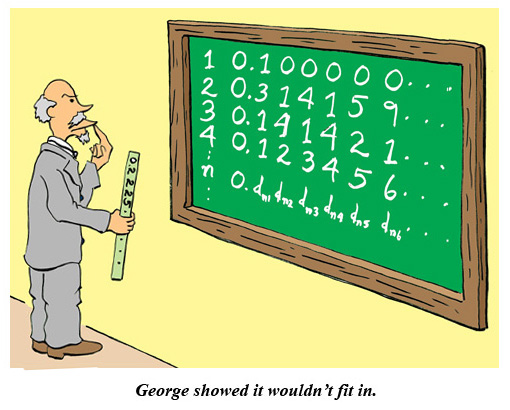 1 0.1 0 0 0 0 0....
2 0.3 1 4 1 5 9...
3 0.1 4 1 4 2 1...
4 0.1 2 3 4 5 6...
:
n 0.dₙ₁ dₙ₂ dₙ₃ dₙ₄ dₙ₅ dₙ₆....
:
0.2225...
George showed it wouldn't fit in.